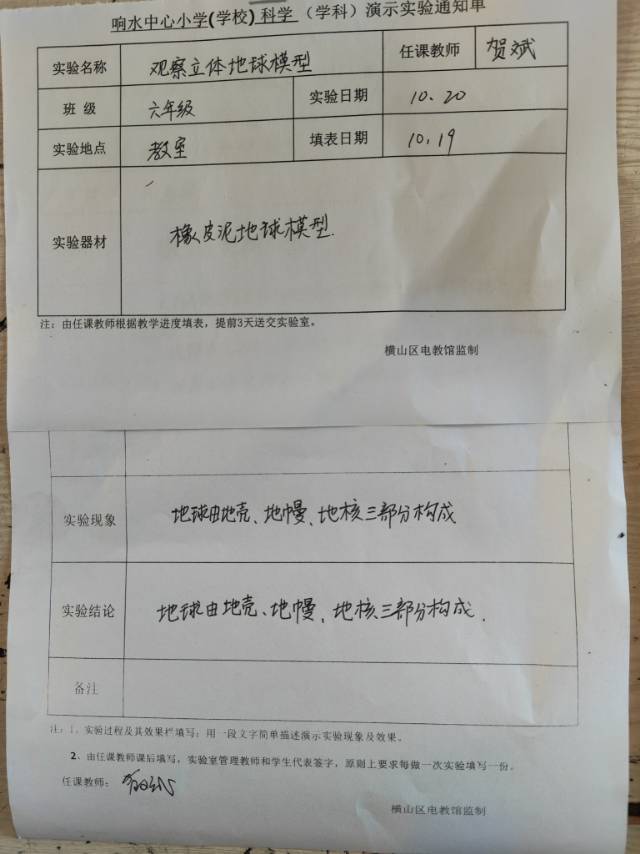 响水中心小学(学校) 科学 (学科) 演示实验通知单
实验名称 观察立体地球模型 任课教师 贺斌
班 级 六年级 实验日期 10.20
实验地点 教室 填表日期 10.19
实验器材 橡皮泥地球模型.
注: 由任课教师根据教学进度填表, 提前3天送交实验室。
横山区电教馆监制
实验现象 地球由地壳、地幔、地核三部分构成
实验结论 地球由地壳、地幔、地核三部分构成.
备注
注: 1、实验过程及其效果栏填写: 用一段文字简单描述演示实验现象及效果。
2、由任课教师课后填写, 实验室管理教师和学生代表签字, 原则上要求每做一次实验填写一份。
任课教师:
横山区电教馆监制